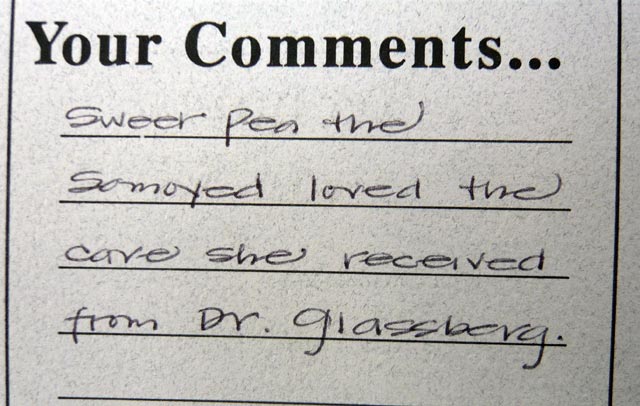 Your Comments...
Sweet Pea the
Samoyed loved the
care she received
from Dr. Glassberg.